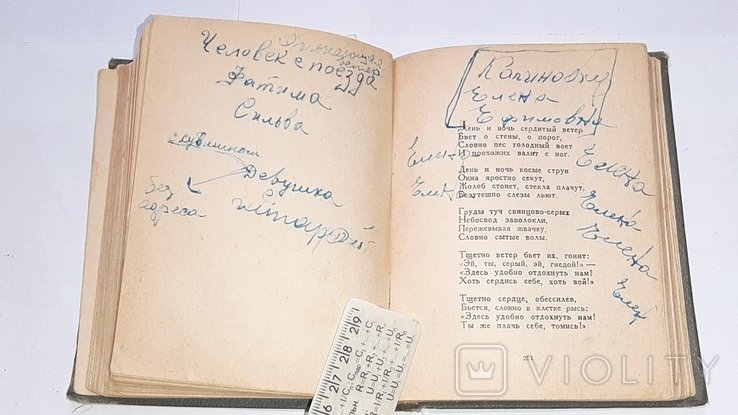 Человек с поезда
Фатима
Сильва
с кувшином
Девушка
с гитарой
без
адреса
Калиновку
Елена
Ефимовна
День и ночь сердитый ветер
Бьет о стены, о порог,
Словно пес голодный воет
И прохожих валит с ног.
День и ночь косые струи
Окна яростно секут,
Жолоб стонет, стекла плачут,
Безутешно слезы льют.
Груды туч свинцово-серых
Небосвод заволокли,
Пережевывая жвачку,
Словно сытые волы.
Тщетно ветер бьет их, гонит:
«Эй, ты, серый, эй, гнедой!» —
«Здесь удобно отдохнуть нам!
Хоть сердись себе, хоть вой!»
Тщетно сердце, обессилев,
Бьется, словно в клетке рысь:
«Здесь удобно отдохнуть нам!
Ты же плачь себе, томись!»
261
Елена
Елена
Елена
Елена
Елена
Елен
16 2|7 2|8 2|9
VIOLITY